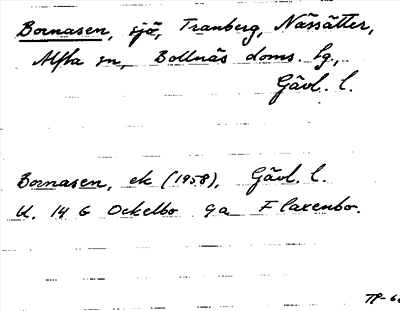 Bornasen, sjö, Tranberg, Nässätter,
Alfta sn, Bollnäs doms. lg.,
Gävl. l.
Bornasen, ek (1958), Gävl. l.
K. 14 G Ockelbo 9a Flaxenbo.